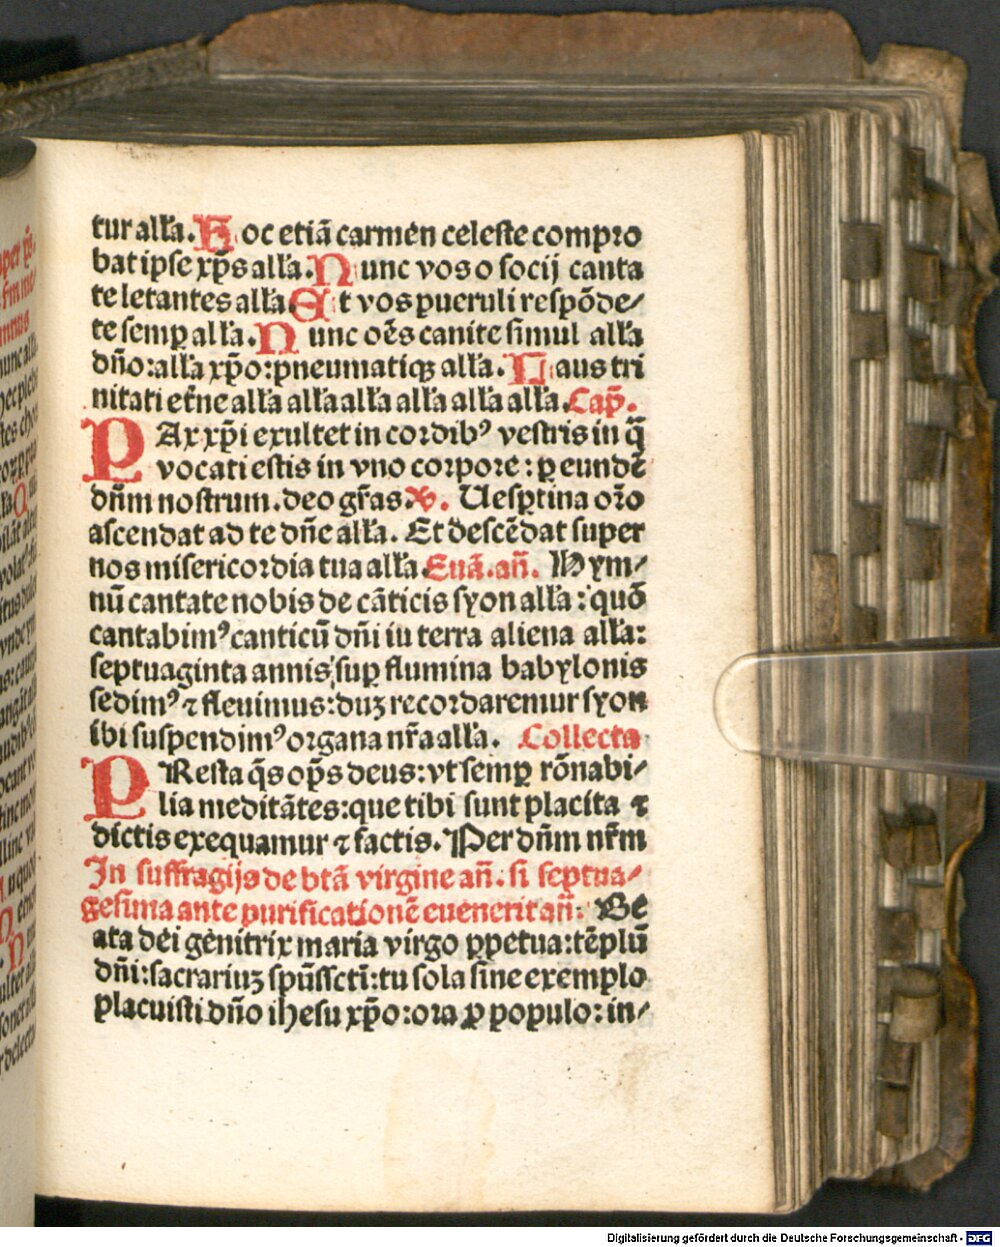 tur all'a. Hoc etiā carmen celeste compro
bat ipse xp̄s all'a. Nunc vos o socij canta
te letantes all'a Et vos pueruli respōde/
te semꝑ all'a. Nunc oēs canite simul all'a
dño: all'a xp̄o: pneumatiqꝫ all'a. Laus tri
nitati et̄ne all'a all'a all'a all'a all'a all'a. Cap̄.
PAx xp̄i exultet in cordibꝰ vestris in q̄
vocati estis in vno corpore: ꝑ eundē
dñm nostrum. deo gr̄as. V. Uesꝑtina oro
ascendat ad te dñe all'a. Et descēdat super
nos misericordia tua all'a Euā. añ. Hym/
nū cantate nobis de cāticis syon all'a: quō
cantabimꝰ canticū dñi iu terra aliena all'a:
septuaginta annis suꝑ flumina babylonis
sedimꝰ ⁊ fleuimus: duꝫ recordaremur syon
ibi suspendimꝰ organa nr̄a all'a. Collecta
PResta q̄s op̄s deus: vt semꝑ rōnabi/
lia meditātes: que tibi sunt placita ⁊
dictis exequamur ⁊ factis. Per dñm nr̄m
In suffragijs de btā virgine añ. si septua/
gesima ante purificationē euenerit añ: Be
ata dei genitrix maria virgo ꝑpetua: tēplū
dñi: sacrariuꝫ spūssctī: tu sola sine exemplo
placuisti dño ihesu xp̄o: ora ꝓ populo: in/
Digitalisierung gefördert durch die Deutsche Forschungsgemeinschaft - DFG